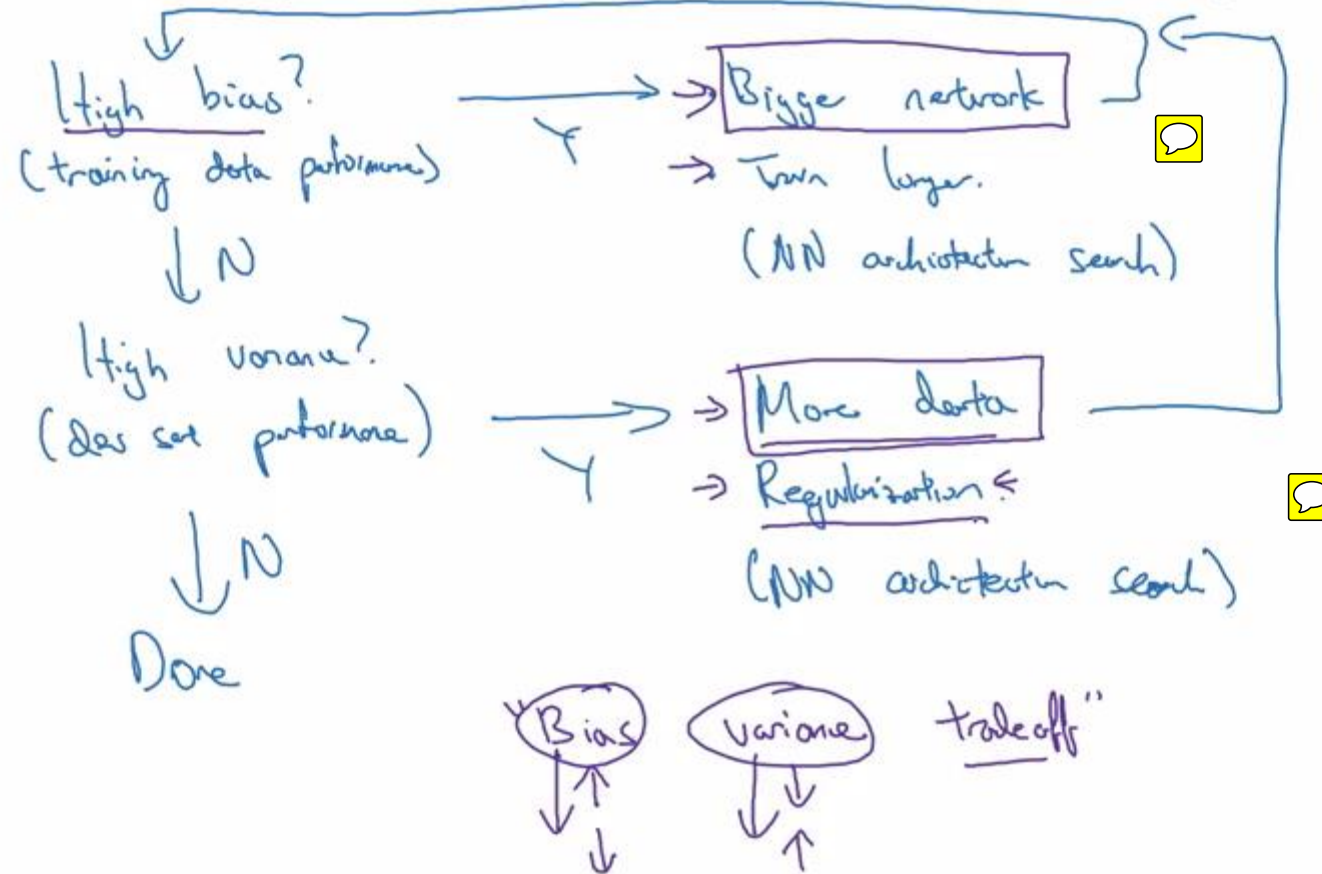 High bias?
(training data performance)
Y
→ Bigge network
→ Train longer.
(NN architecture search)
N
High variance?
(dev set performance)
Y
→ More data
→ Regularization ←
(NN architecture search)
N
Done
"Bias variance tradeoff"